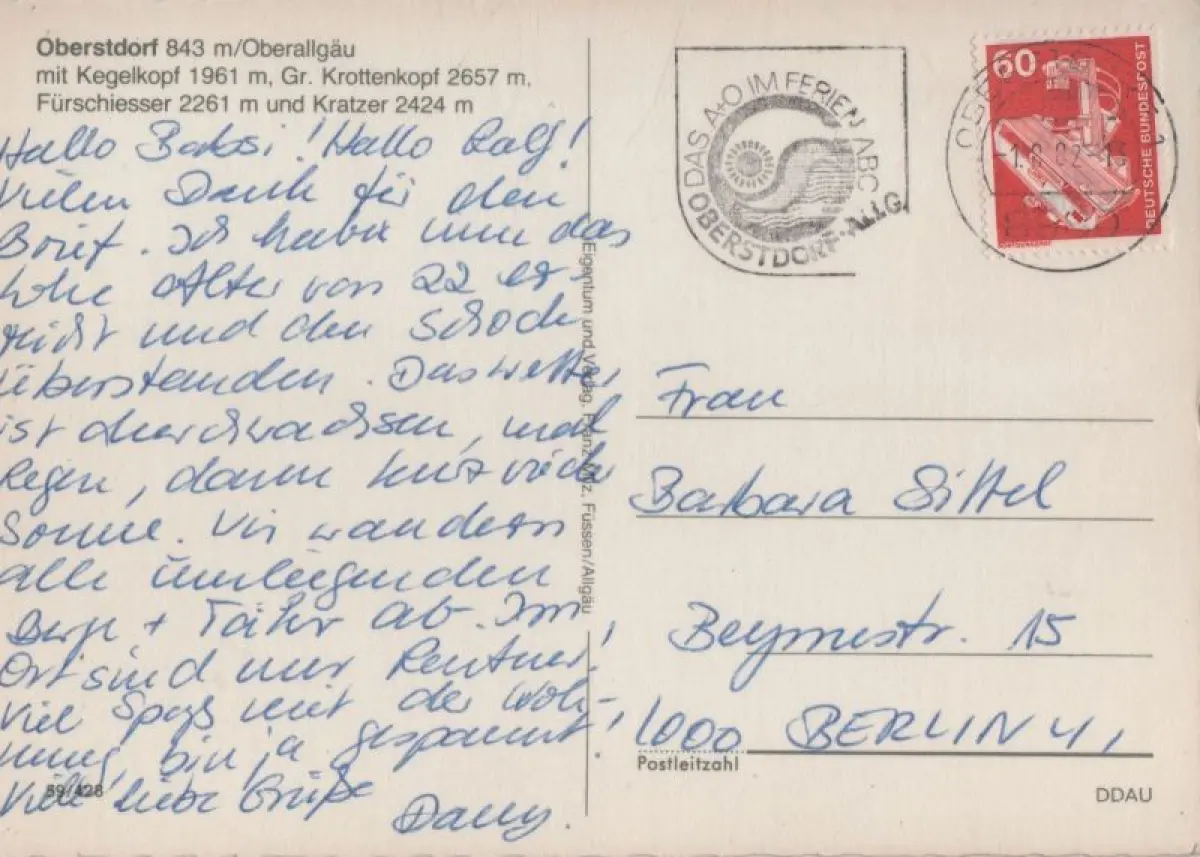 Oberstdorf 843 m/Oberallgäu
mit Kegelkopf 1961 m, Gr. Krottenkopf 2657 m,
Fürschiesser 2261 m und Kratzer 2424 m
Hallo Babsi! Hallo Ralf!
Vielen Dank für den
Brief. Ich habe nun das
hohe Alter von 22 er-
reicht und den Schock
überstanden. Das Wetter
ist durchwachsen, mal
Regen, dann kurz wieder
Sonne. Wir wandern
alle umliegenden
Berge + Täler ab. Im
Ort sind nur Rentner!
Viel Spaß mit der Woh-
nung, bin ja gespannt.
Viele liebe Grüße
59/428
Eigentum und Verlag, Franz Milz, Füssen/Allgäu
DAS A+O IM FERIEN ABC
OBERSTDORF·ALLG.
60
DEUTSCHE BUNDESPOST
Frau
Barbara Sittel
Beymestr. 15
1000 BERLIN 41
Postleitzahl
DDAU